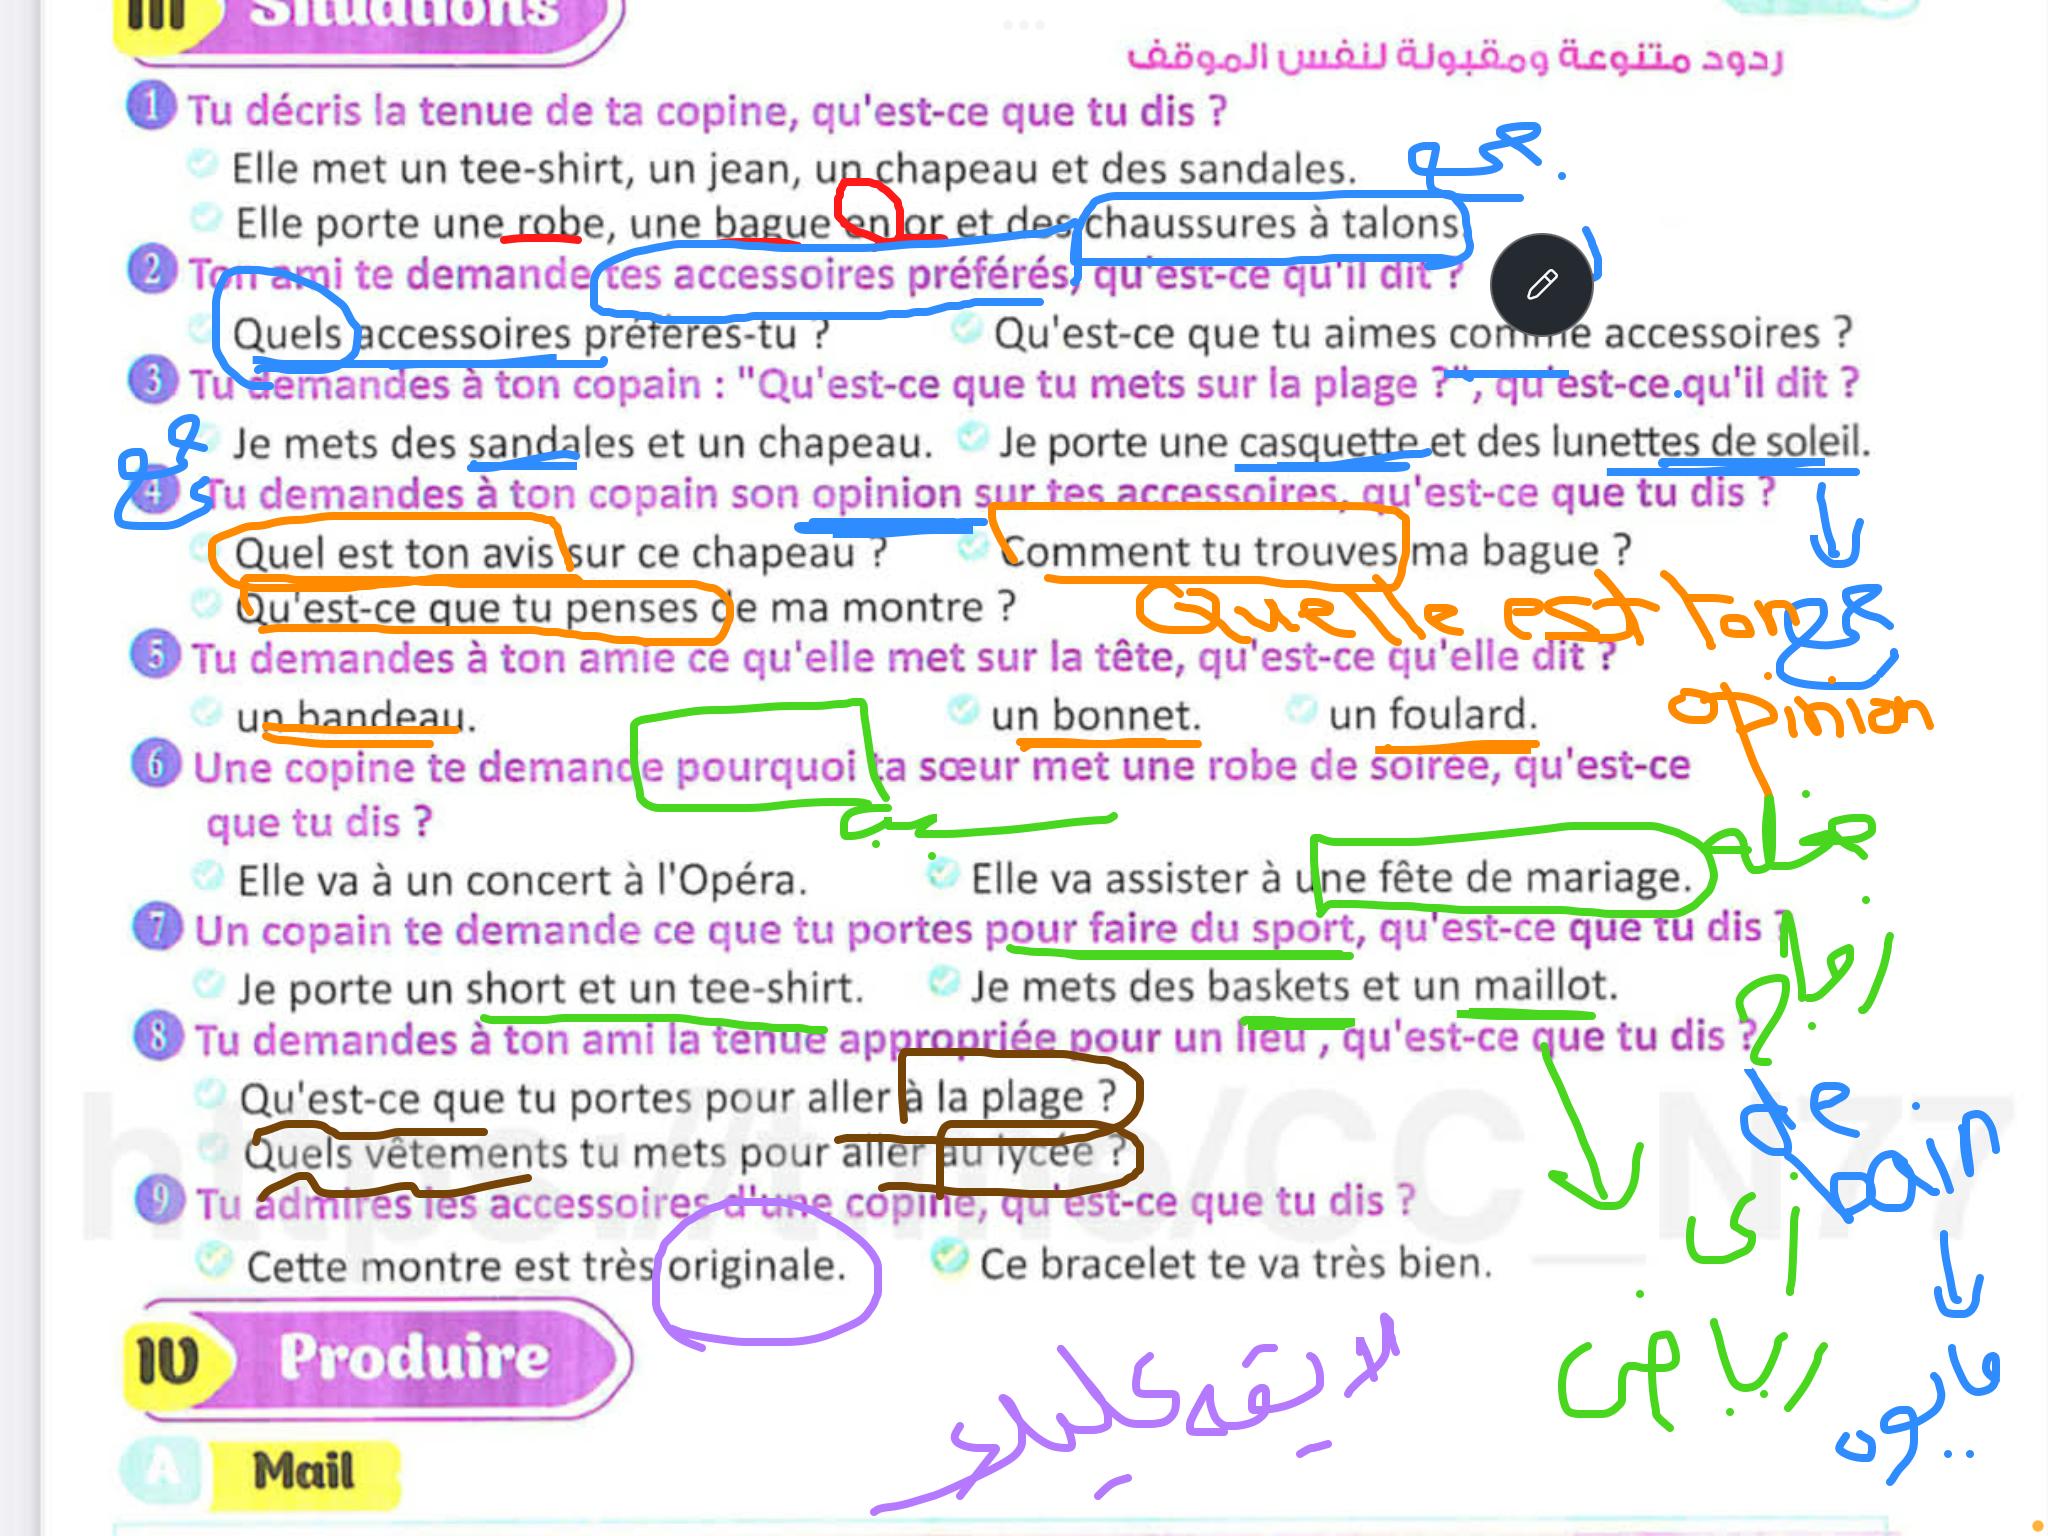 III Situations
ردود متنوعة ومقبولة لنفس الموقف
1 Tu décris la tenue de ta copine, qu'est-ce que tu dis ?
Elle met un tee-shirt, un jean, un chapeau et des sandales.
Elle porte une robe, une bague en or et des chaussures à talons.
2 Ton ami te demande tes accessoires préférés, qu'est-ce qu'il dit ?
Quels accessoires préfères-tu ? Qu'est-ce que tu aimes comme accessoires ?
3 Tu demandes à ton copain : "Qu'est-ce que tu mets sur la plage ?", qu'est-ce qu'il dit ?
Je mets des sandales et un chapeau. Je porte une casquette et des lunettes de soleil.
4 Tu demandes à ton copain son opinion sur tes accessoires, qu'est-ce que tu dis ?
Quel est ton avis sur ce chapeau ? Comment tu trouves ma bague ?
Qu'est-ce que tu penses de ma montre ?
Quelle est ton
opinion
5 Tu demandes à ton amie ce qu'elle met sur la tête, qu'est-ce qu'elle dit ?
un bandeau. un bonnet. un foulard.
6 Une copine te demande pourquoi ta sœur met une robe de soirée, qu'est-ce
que tu dis ?
Elle va à un concert à l'Opéra. Elle va assister à une fête de mariage.
7 Un copain te demande ce que tu portes pour faire du sport, qu'est-ce que tu dis ?
Je porte un short et un tee-shirt. Je mets des baskets et un maillot.
8 Tu demandes à ton ami la tenue appropriée pour un lieu , qu'est-ce que tu dis ?
Qu'est-ce que tu portes pour aller à la plage ?
de
bain
Quels vêtements tu mets pour aller au lycée ?
9 Tu admires les accessoires d'une copine, qu'est-ce que tu dis ?
Cette montre est très originale. Ce bracelet te va très bien.
لايقه عليكي
رياضي
مايوه
IV Produire
A Mail